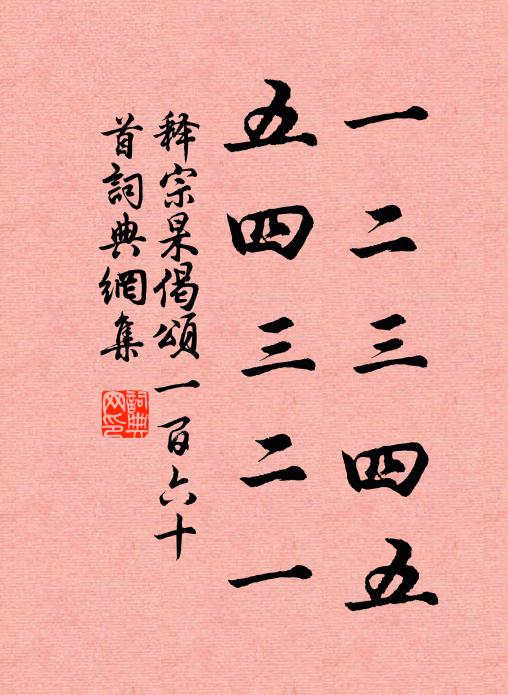 一二三四五
五四三二一
释宗杲偈頌一百六十
首詞典網集
詞典网印